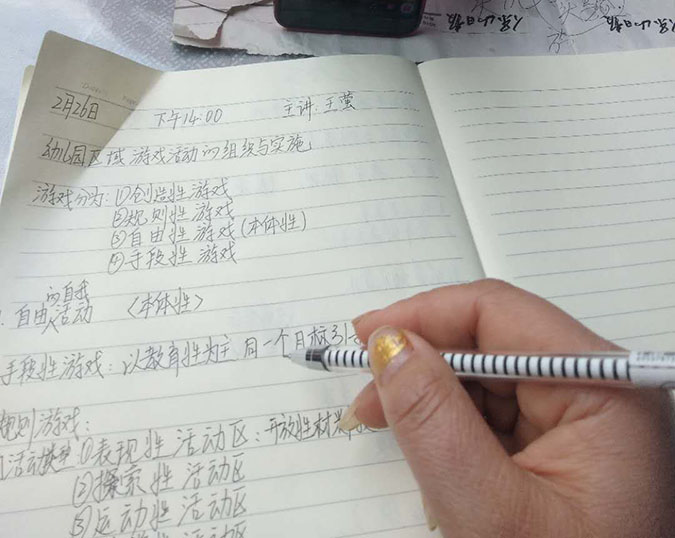 2月26日 下午14:00 主讲:王萤
幼儿园区域游戏活动的组织与实施
游戏分为:①创造性游戏
②规则性游戏
③自由性游戏(本体性)
④手段性游戏
的自我
自由活动 <本体性>
手段性游戏:以教育性为主 用一个目标引
规则游戏:
活动类型①表现性活动区:开放性材料
②探索性活动区
③运动性活动区